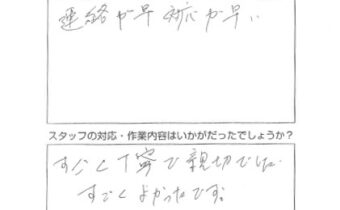 連絡が早 対応が早い
スタッフの対応・作業内容はいかがだったでしょうか?
すごく丁寧で親切でした
すごくよかったです。